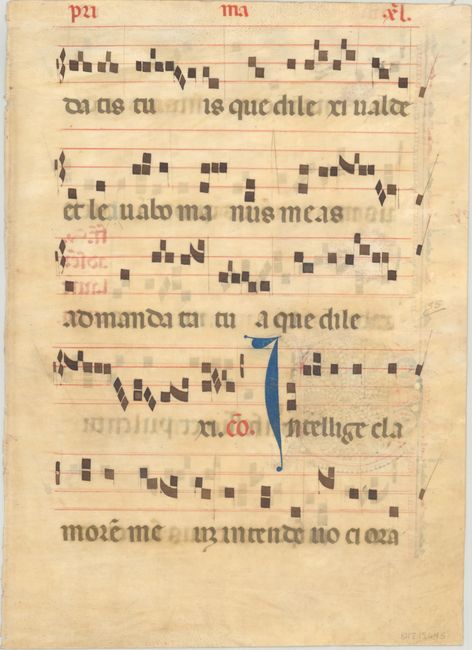 pri ma xl.
da tis tu is que dile xi ualde
et le uabo ma nus meas
ad manda ta tu a que dile
xi. cō. Intellige cla
morē me um intende uo ci ora